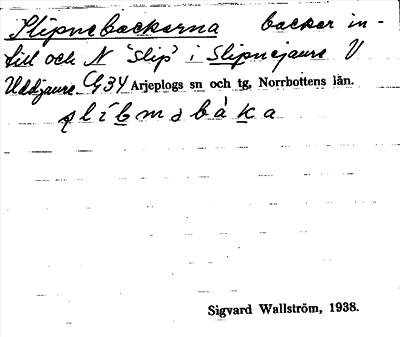 Slipnebackarna backar in-
till och N "Slip" i Slipnejaure V
Uddjaure G34 Arjeplogs sn och tg, Norrbottens län.
slíbməbàka
Sigvard Wallström, 1938.